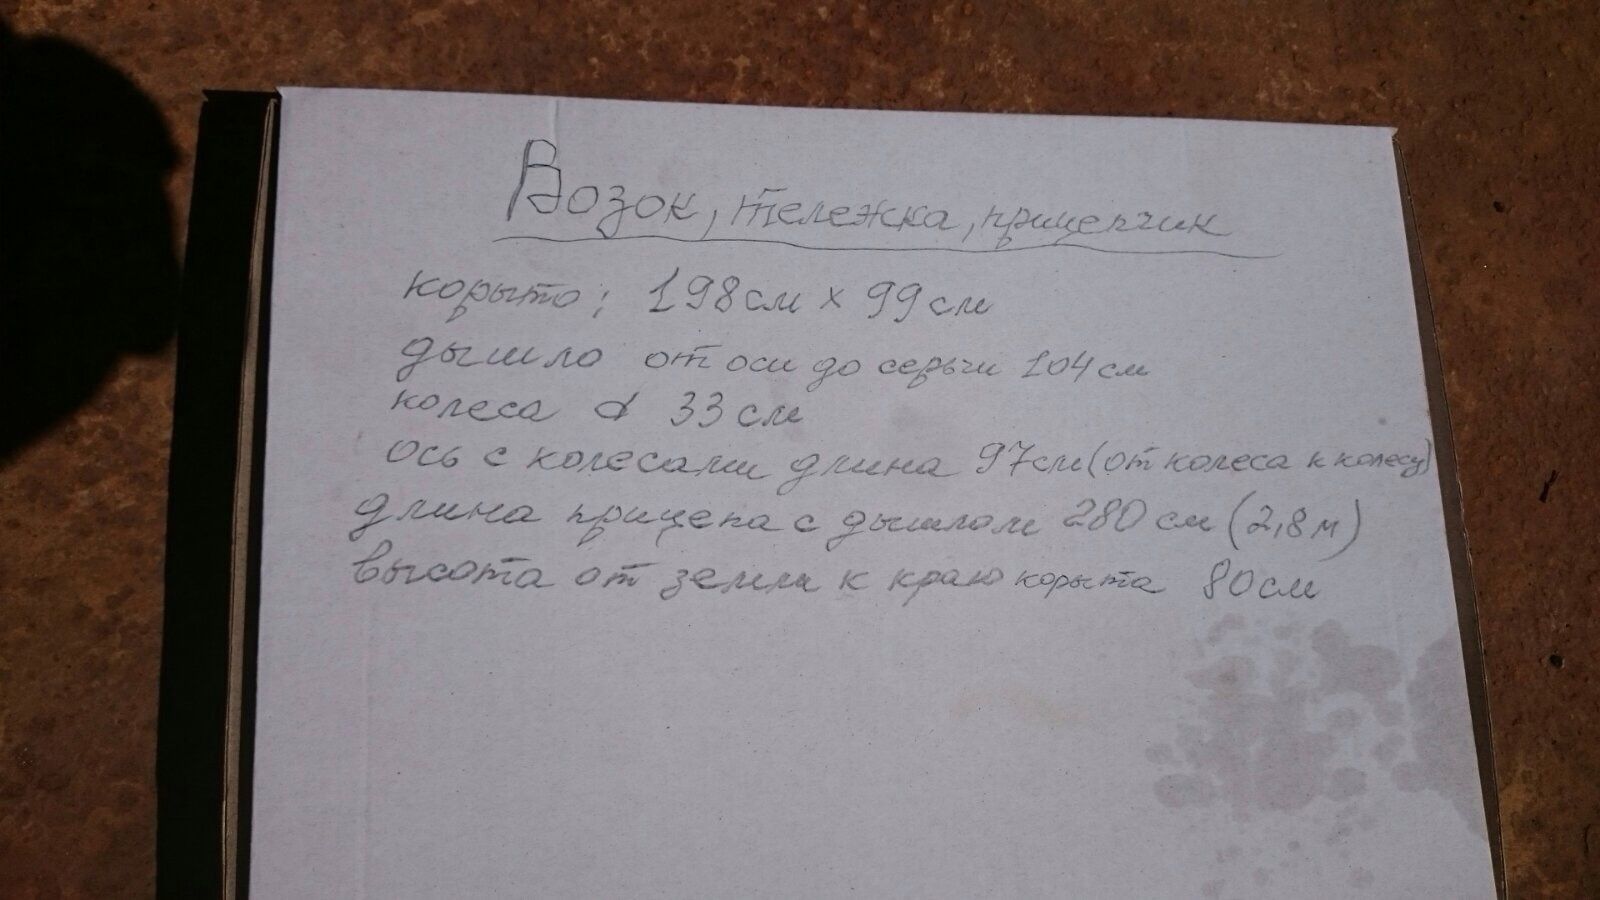 Возок, тележка, прицепчик
корыто; 198см х 99см
дышло от оси до серьги 104см
колеса d 33см
ось с колесами длина 97см (от колеса к колесу)
длина прицепа с дышлом 280 см (2,8м)
высота от земли к краю корыта 80см